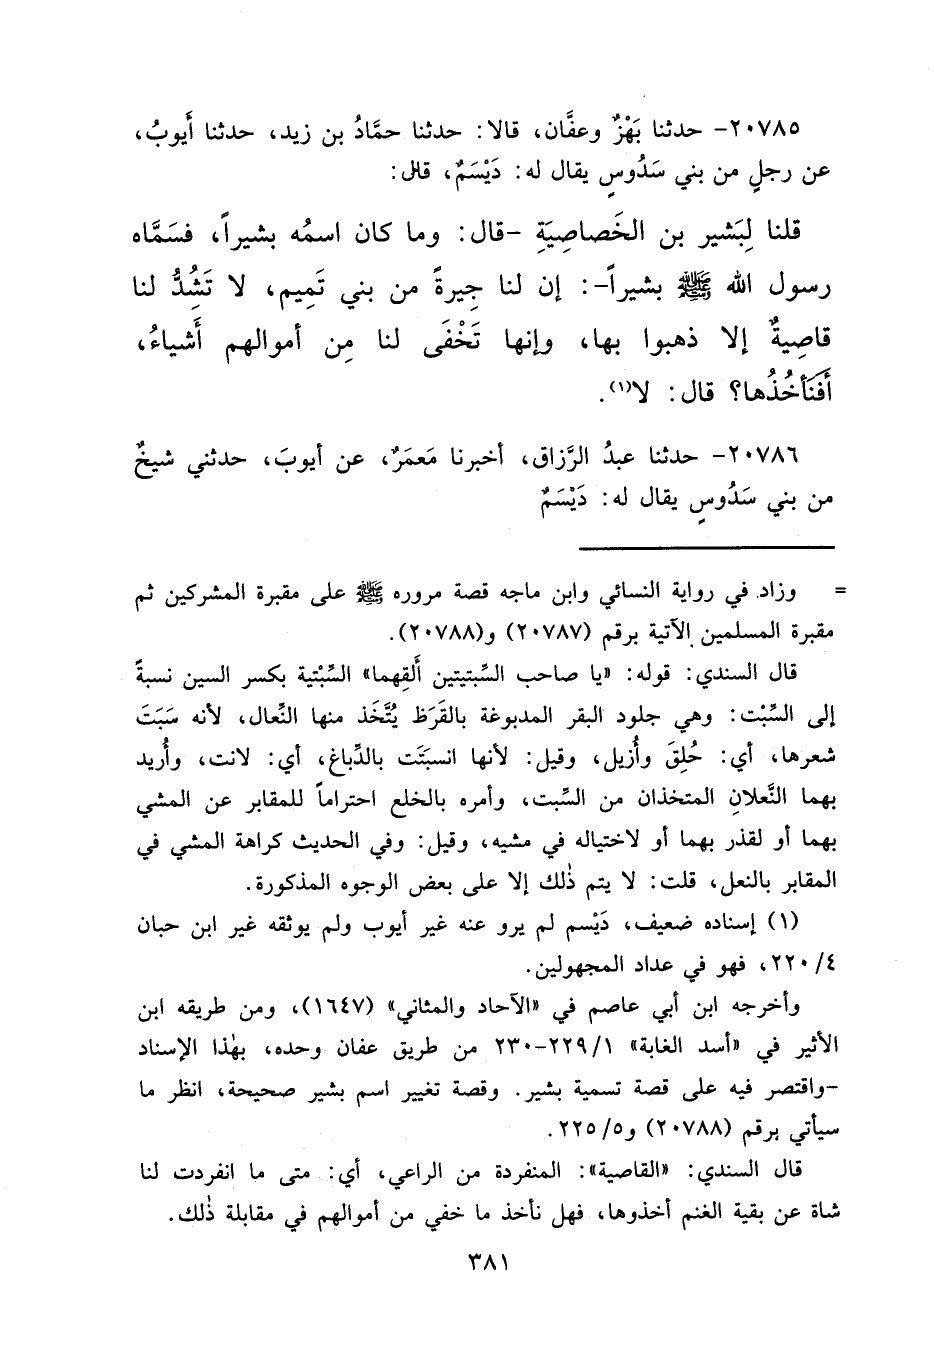 ٢٠٧٨٥- حدثنا بَهْزٌ وعفَّان، قالا: حدثنا حمَّادُ بن زيد، حدثنا أَيوبُ،
عن رجلٍ من بني سَدُوسٍ يقال له: دَيْسَمٌ، قال:
قلنا لِبَشير بن الخَصاصِيَةِ -قال: وما كان اسمُه بشيراً، فسَمَّاه
رسول الله ﷺ بشيراً-: إن لنا جِيرةً من بني تَمِيم، لا تَشُِذُّ لنا
قاصِيةٌ إلا ذهبوا بها، وإنها تَخْفَى لنا مِن أموالهم أَشياءُ،
أَفَنَأخُذُها؟ قال: لا(١).
٢٠٧٨٦- حدثنا عبدُ الرَّزاق، أخبرنا مَعمَرٌ، عن أيوبَ، حدثني شيخٌ
من بني سَدُوسٍ يقال له: دَيْسَمٌ
= وزاد في رواية النسائي وابن ماجه قصة مروره ﷺ على مقبرة المشركين ثم
مقبرة المسلمين الآتية برقم (٢٠٧٨٧) و(٢٠٧٨٨).
قال السندي: قوله: «يا صاحب السِّبتيتين أَلقِهما» السِّبْتية بكسر السين نسبةً
إلى السِّبْت: وهي جلود البقر المدبوغة بالقَرَظ يُتَّخَذ منها النِّعال، لأنه سَبَتَ
شعرها، أي: حُلِقَ وأُزيل، وقيل: لأنها انسبَتَت بالدِّباغ، أي: لانت، وأُريد
بهما النَّعلانِ المتخذان من السِّبت، وأمره بالخلع احتراماً للمقابر عن المشي
بهما أو لقذر بهما أو لاختياله في مشيه، وقيل: وفي الحديث كراهة المشي في
المقابر بالنعل، قلت: لا يتم ذٰلك إلا على بعض الوجوه المذكورة.
(١) إسناده ضعيف، دَيْسم لم يرو عنه غير أيوب ولم يوثقه غير ابن حبان
٤/ ٢٢٠، فهو في عداد المجهولين.
وأخرجه ابن أبي عاصم في «الآحاد والمثاني» (١٦٤٧)، ومن طريقه ابن
الأثير في «أسد الغابة» ١/ ٢٢٩-٢٣٠ من طريق عفان وحده، بهٰذا الإسناد
-واقتصر فيه على قصة تسمية بشير. وقصة تغيير اسم بشير صحيحة، انظر ما
سيأتي برقم (٢٠٧٨٨) و٥/ ٢٢٥.
قال السندي: «القاصية»: المنفردة من الراعي، أي: متى ما انفردت لنا
شاة عن بقية الغنم أخذوها، فهل نأخذ ما خفي من أموالهم في مقابلة ذٰلك.
٣٨١